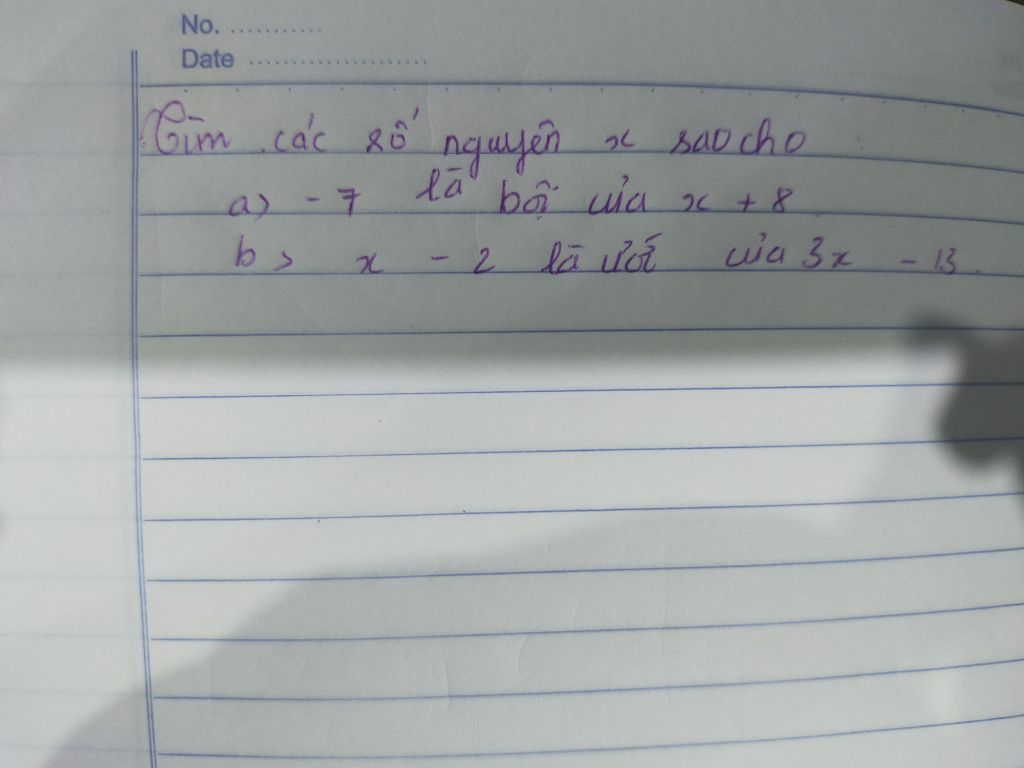 No. ...........
Date .....................
Tìm các số nguyên x sao cho
a) -7 là bội của x + 8
b) x - 2 là ước của 3x - 13